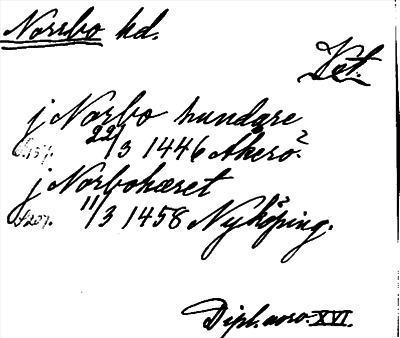 Norrbo hd.
Vst.
j Norbo hundare
22/3 1446 Åkerö.
j Norbohæret
11/3 1458 Nyköping.
Diplavso. XVI.